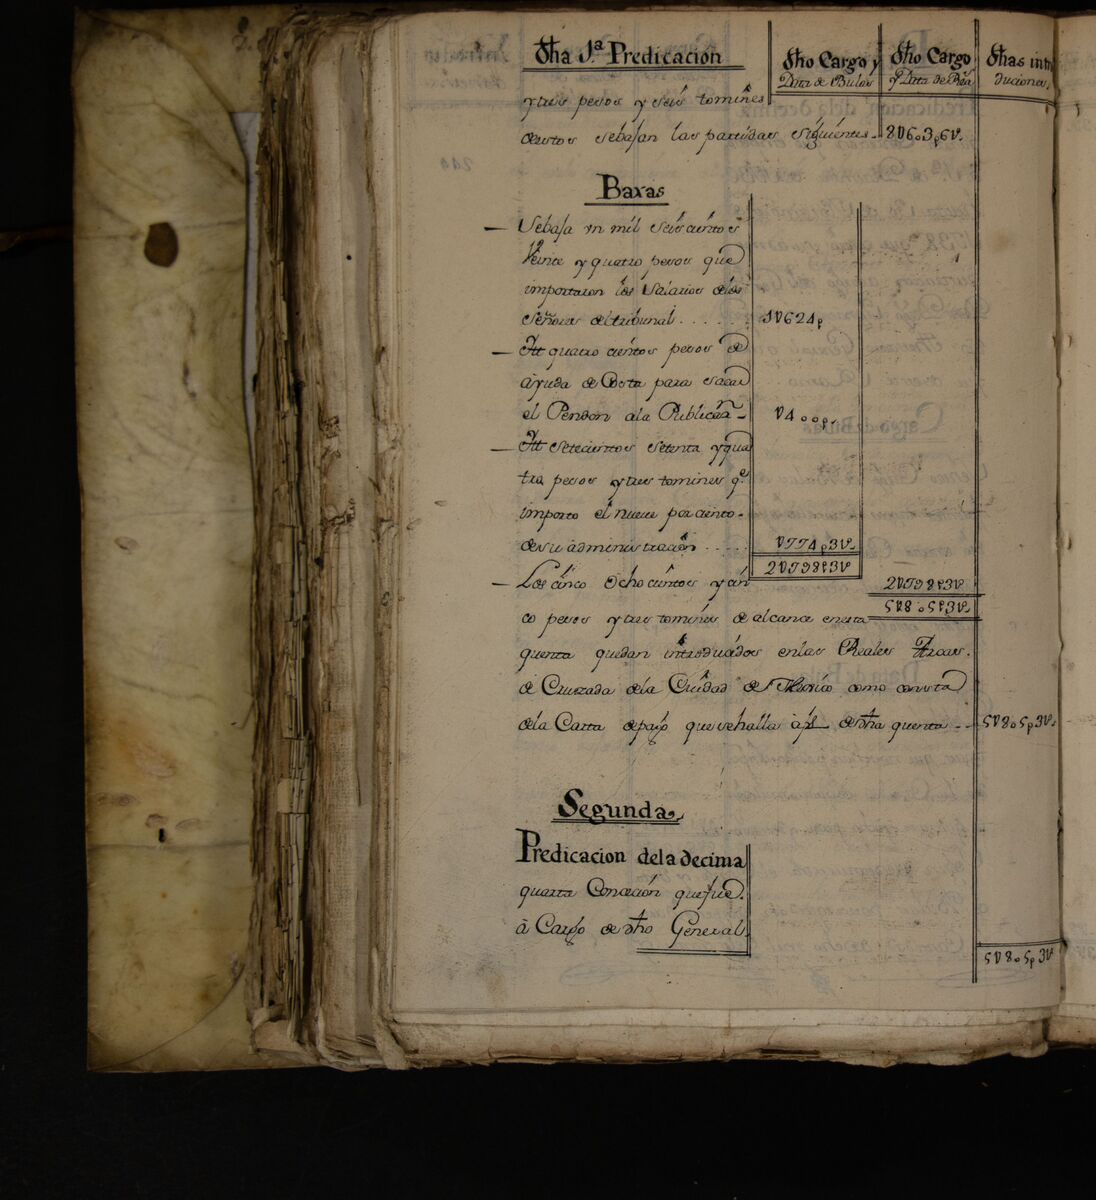 dha 1.ª Predicacion
dho Cargo y
Data de Bulas
dho Cargo
y Data de
dhas intro
duciones.
y tres pesos y seis tomines
de estos sebajan las partidas siguientes. 8U603p6
Baxas
Sebaja un mil seiscientos
Veinte y quatro pesos que
importaron los Salarios de los
Señores del tribunal ....... 1U624p
Itt quatro cientos pesos de
ayuda de Costa para sacar
el Pendon ala Publicon U400p.
Itt setecientos setenta y qua
tro pesos y tres tomines q.e
importo el nueve por ciento
de su administracion ..... U774p3
2U798p3
Los cinco Ochocientos y cin 2U798p3
5U805p3
co pesos y tres tomines de alcance en esta
quenta quedan introducidos en las Reales Arcas
de Cruzada de la Ciudad de Mexico como consta
de la Carta de pago que se halla de dha quenta - - 5U805p3
Segunda
Predicacion de la decima
quarta Concecion que fue
à Cargo de dho General.
5U805p3